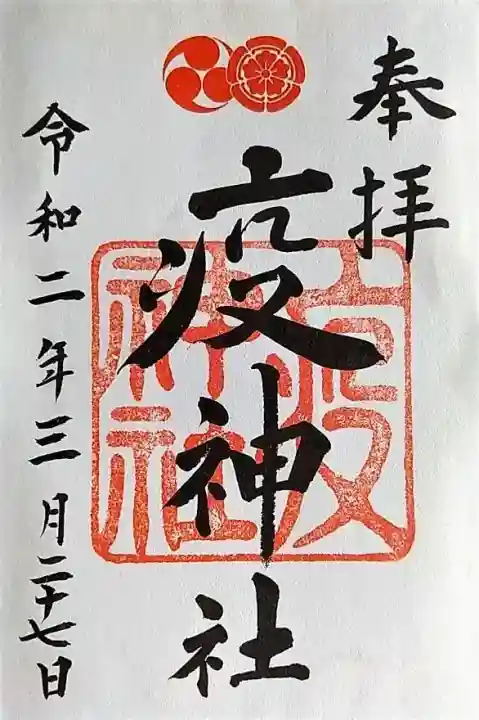 奉拝
疫神社
疫神社
令和二年三月二十七日